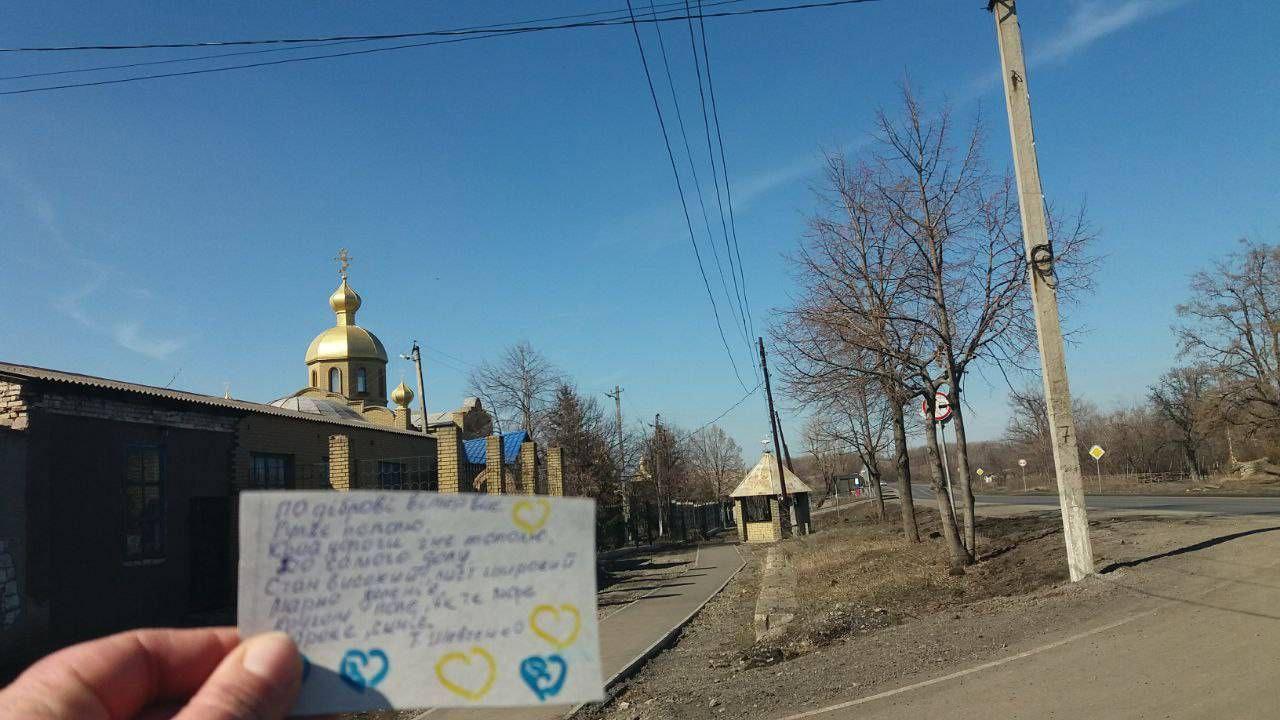 по діброві вітер виє
Гуляє по полю,
Край дороги гне тополю,
До самого долу
Стан високий, лист широкий
Марно зеленіє
Кругом поле, як те море
Широке, синіє.
Т. Шевченко
7